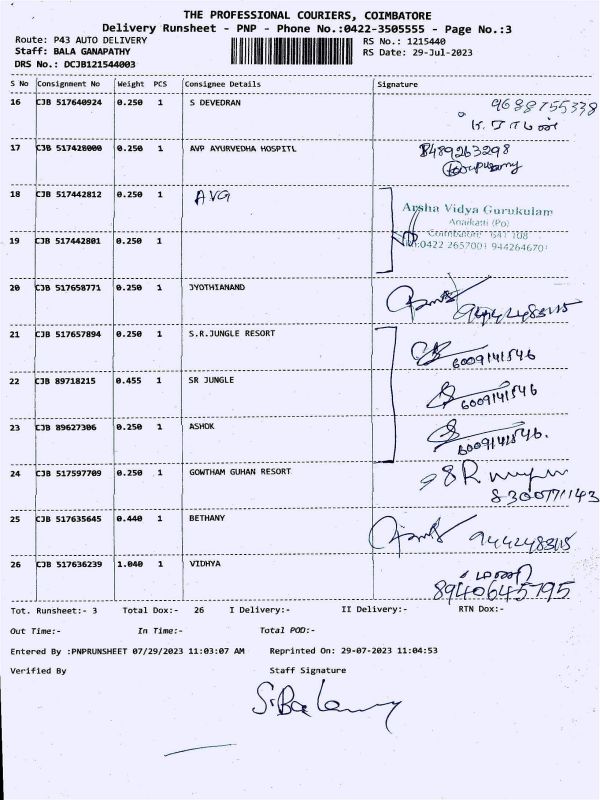 THE PROFESSIONAL COURIERS, COIMBATORE
Delivery Runsheet - PNP - Phone No.:0422-3505555 - Page No.:3
Route: P43 AUTO DELIVERY RS No.: 1215440
Staff: BALA GANAPATHY RS Date: 29-Jul-2023
DRS No.: DCJB121544003
S No Consignment No Weight PCS Consignee Details Signature
16 CJB 517640924 0.250 1 S DEVEDRAN 9688755338
17 CJB 517428000 0.250 1 AVP AYURVEDHA HOSPITL 8489263298
18 CJB 517442812 0.250 1 AVG
Arsha Vidya Gurukulam
Anaikatti (Po)
Coimbatore 641 108
19 CJB 517442801 0.250 1 Ph:0422 2657001 944264670
20 CJB 517658771 0.250 1 JYOTHIANAND
21 CJB 517657894 0.250 1 S.R.JUNGLE RESORT 6009141546
22 CJB 89718215 0.455 1 SR JUNGLE 6009141546
23 CJB 89627306 0.250 1 ASHOK 6009141546.
24 CJB 517597709 0.250 1 GOWTHAM GUHAN RESORT
25 CJB 517635645 0.440 1 BETHANY 9442483115
26 CJB 517636239 1.040 1 VIDHYA மணி
8940645795
Tot. Runsheet:- 3 Total Dox:- 26 I Delivery:- II Delivery:- RTN Dox:-
Out Time:- In Time:- Total POD:-
Entered By :PNPRUNSHEET 07/29/2023 11:03:07 AM Reprinted On: 29-07-2023 11:04:53
Verified By Staff Signature